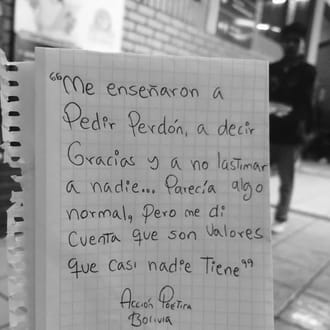 “Me enseñaron a
Pedir Perdón, a decir
Gracias y a no lastimar
a nadie... Parecía algo
normal, Pero me di
cuenta que son valores
que casi nadie Tiene”
Acción Poetica
Bolivia